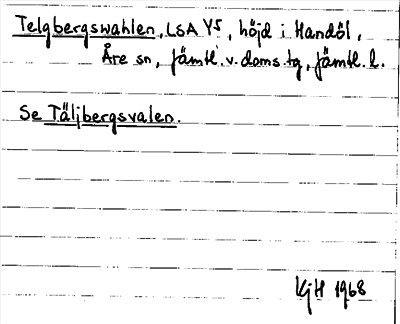 Telgbergswahlen, LSA Y5, höjd i Handöl,
Åre sn, Jämtl. v. doms.tg, Jämtl. l.
Se Täljbergsvalen.
KjH 1968